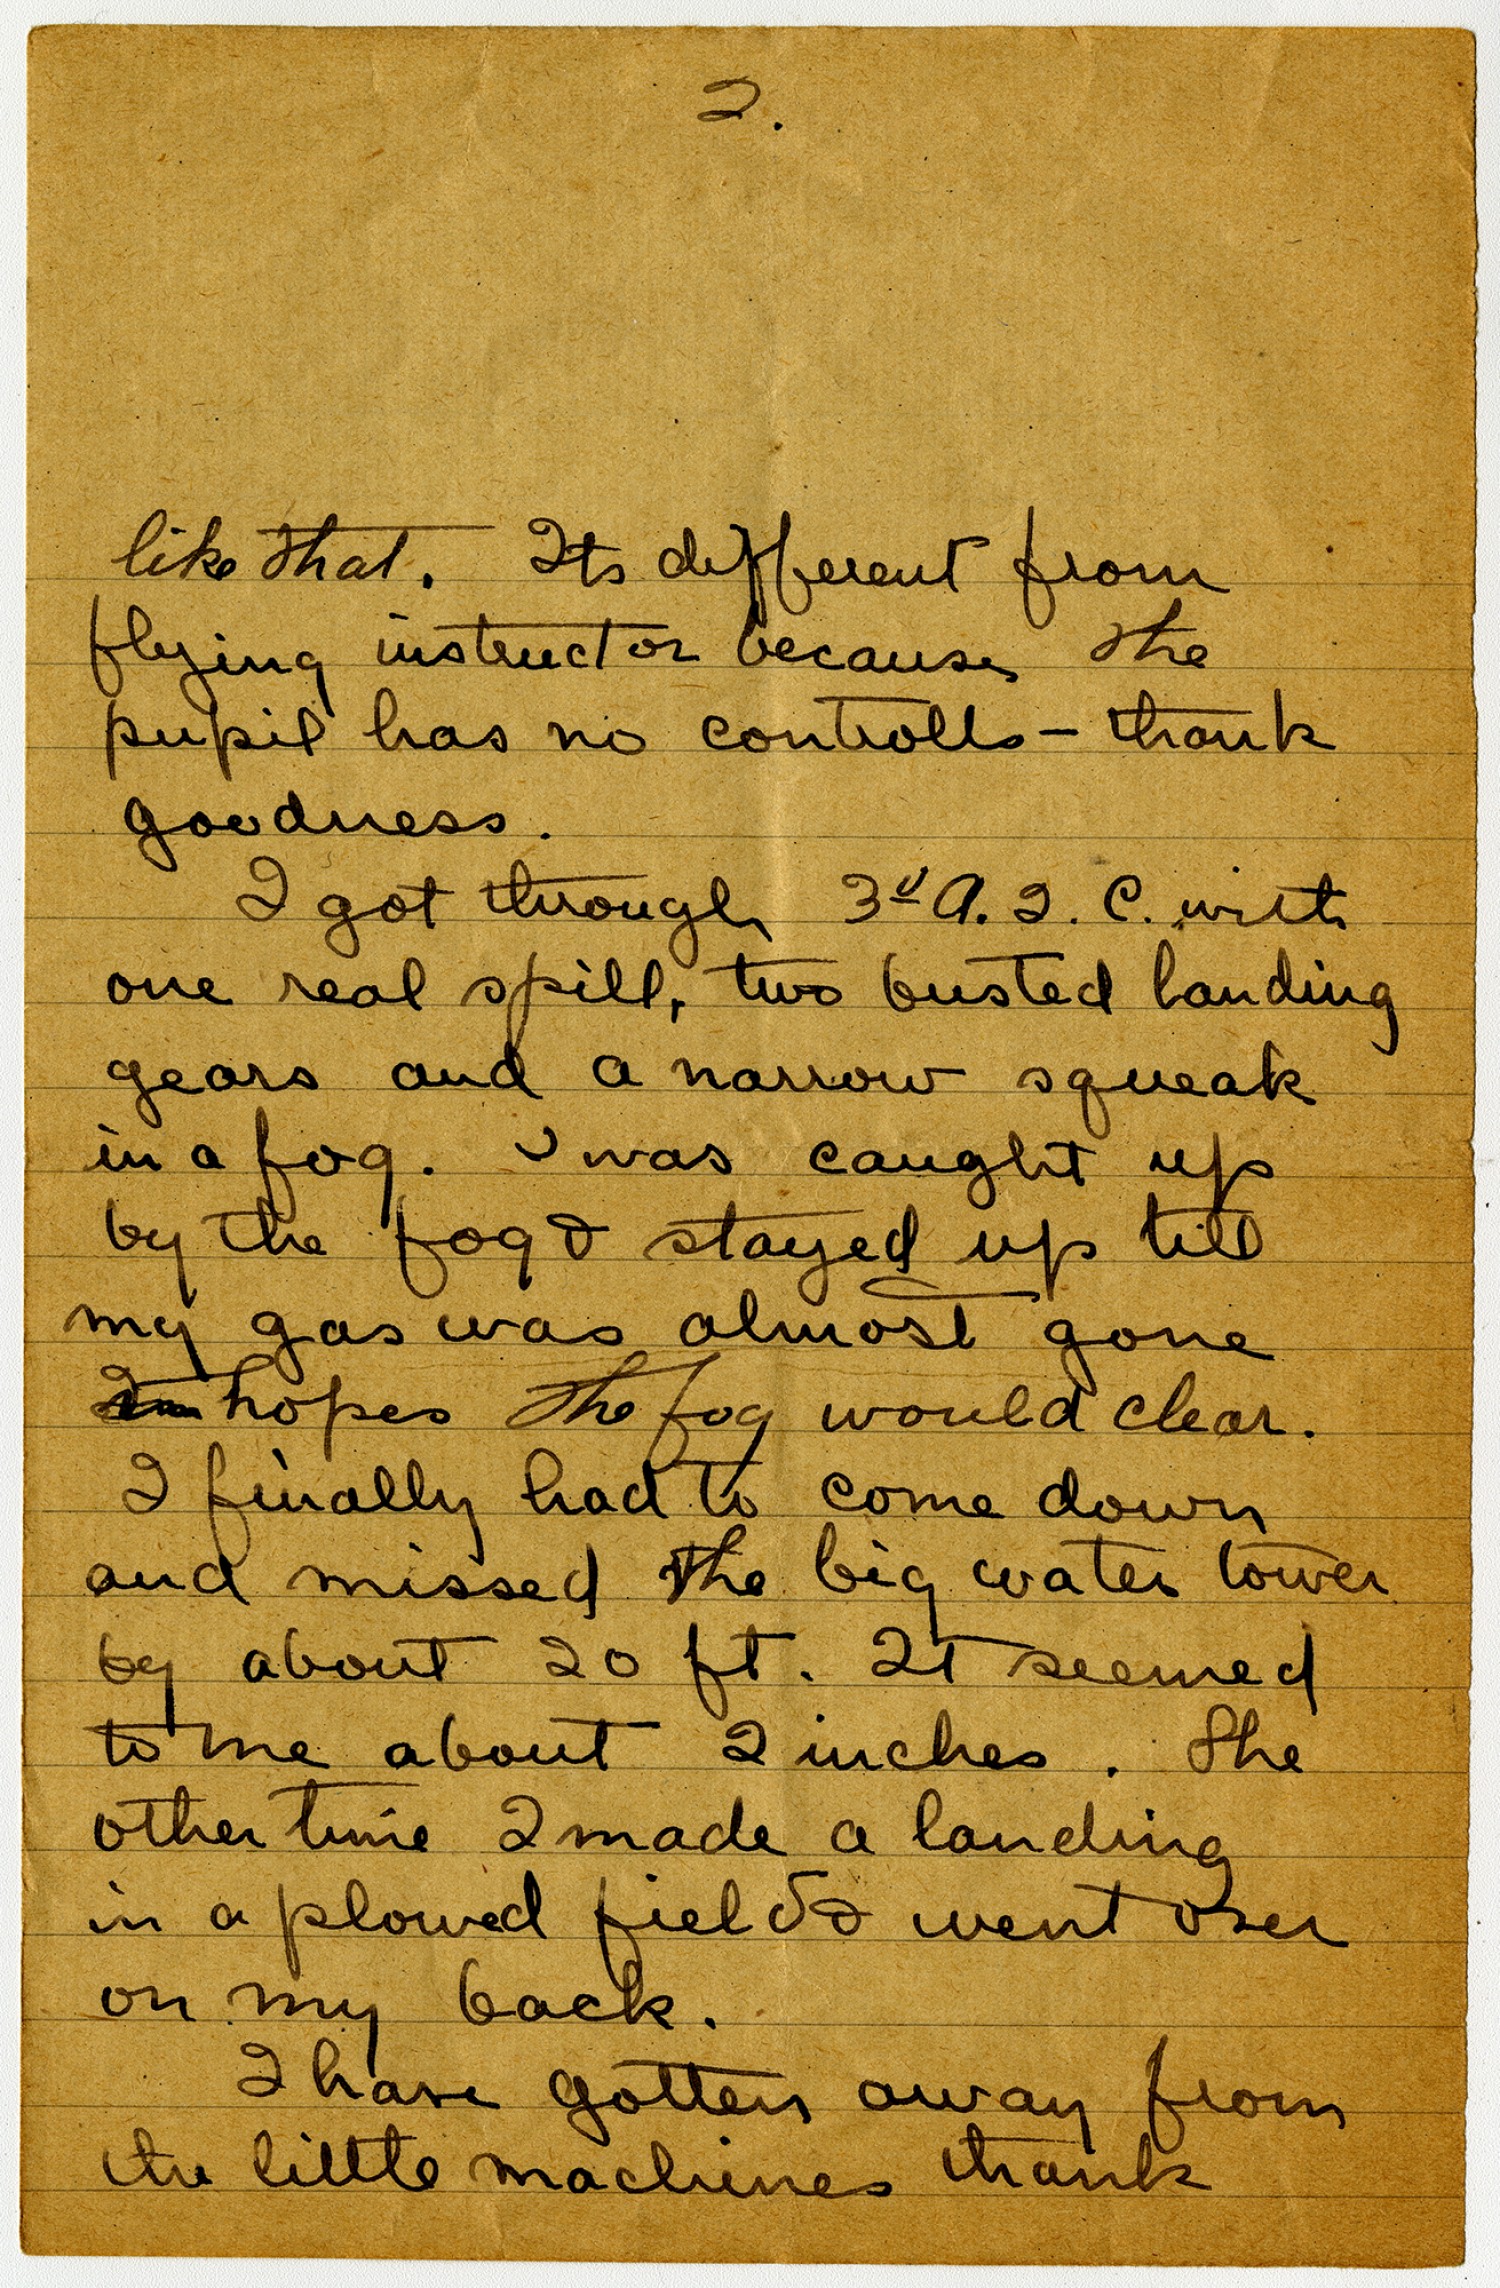 2.
like that. Its different from
flying instructor because the
pupil has no controlls – thank
goodness.
I got through 3d A. I. C. with
one real spill, two busted landing
gears and a narrow squeak
in a fog. I was caught up
by the fog & stayed up till
my gas was almost gone
In hopes the fog would clear.
I finally had to come down
and missed the big water tower
by about 20 ft. It seemed
to me about 2 inches. The
other time I made a landing
in a plowed field & went over
on my back.
I have gotten away from
the little machines thank